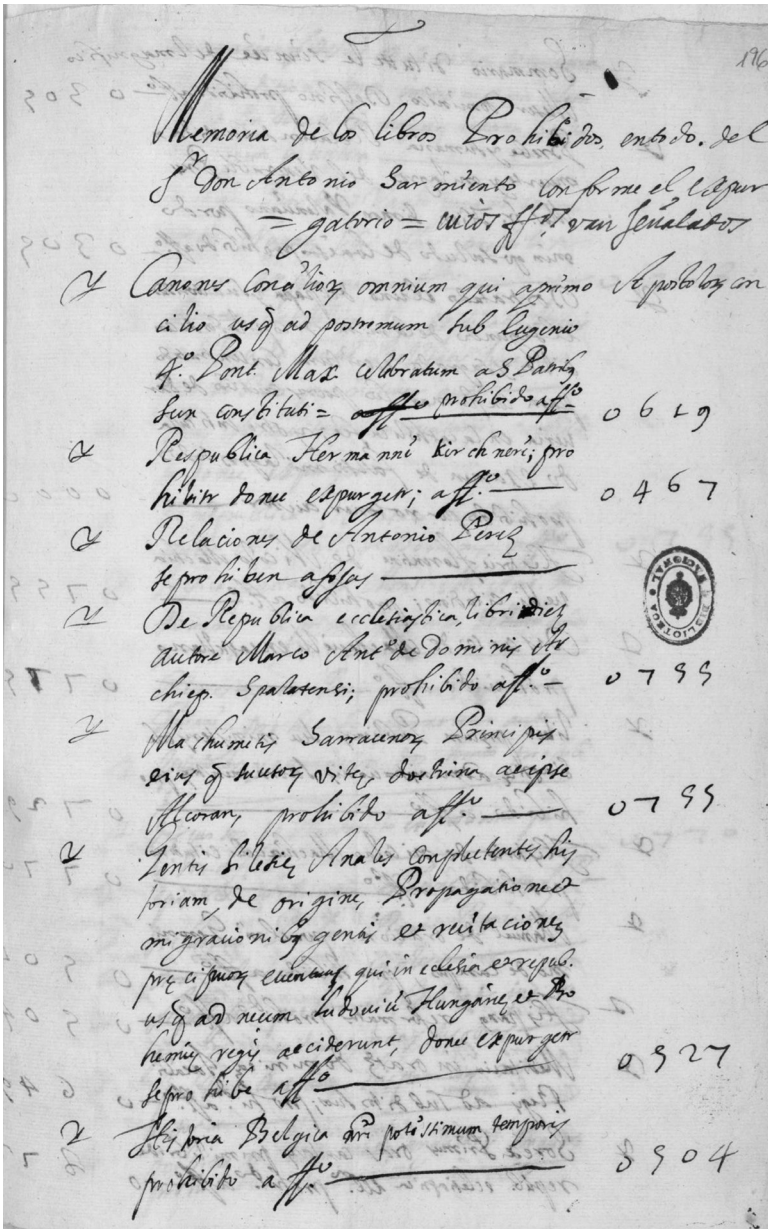 196
Memoria de los libros Prohibidos, entodo. del
Sr don Antonio Sarmiento conforme el expur
= gatorio = cuios ffos. van señalados
Canones Conciliorz omnium qui aprimo Apostolorz con
cilio usq ad postremum sub Eugenio
4.º Pont. Max. celebratum a S Patribz
sunt constituti = prohibido affº 0619
Respublica Hermanni Kirchneri; pro
hibetr donec expurgetr; a ffº. 0467
Relaciones de Antonio Perez
se prohiben afojas
De Republica ecclesiastica, libri diez
autore Marco Antº de Dominis Ar
chiep. Spalatensi; prohibido a ffº. 0755
Machumetis Sarracenorz Principis
eius q sucesorz vitę, doctrina ac ipse
Alcoran, prohibido a ffº. 0755
Gentis Silesię Anales complectentes his
toriam, de origine, Propagatione et
migracionibz gentis et recitaciones
pręcipuorz eventuum qui in eclesia et repub.
usq ad necem Ludovici Hungarię et Bo
hemię regis acciderunt, donec expurgetr
se prohibe a ffº 0527
Historia Belgica nri potissimum temporis
prohibido a ffº. 0504
BIBLIOTECA NACIONAL